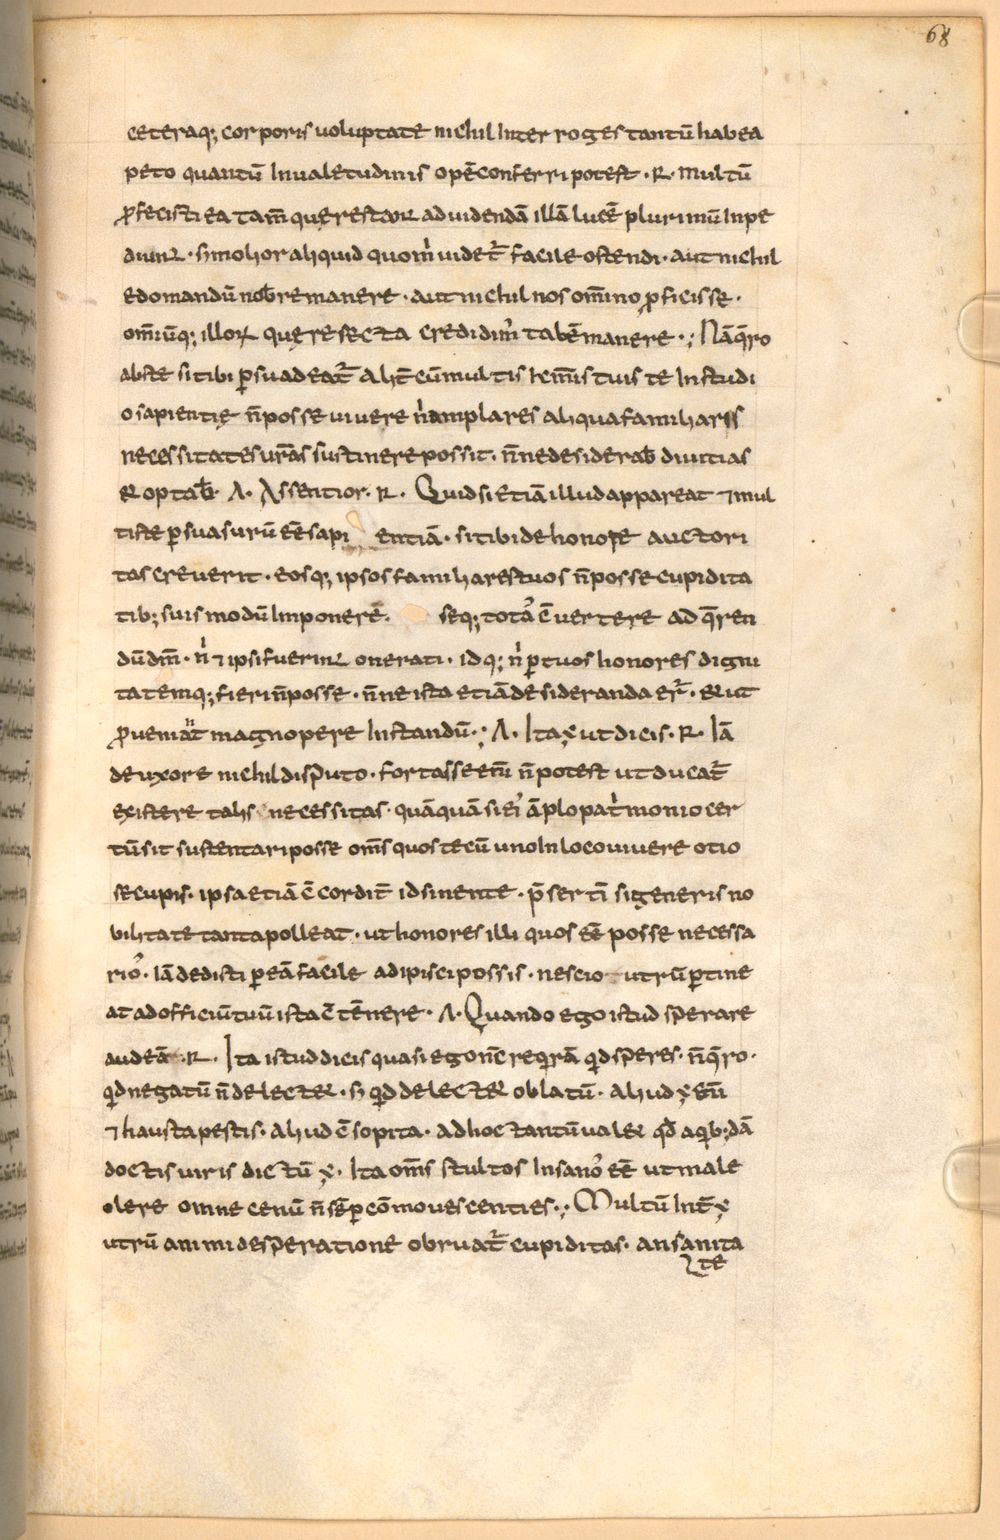 68
ceteraq; corporis uoluptate nichil Interroges tantū habea
peto quantū Inualetudinis opē conferri potest · R · multū
ꝓfecisti ea tam̄ quę restant ad uidendā illā lucē plurimū Inpe
diunt · sꝫ molior aliquid quom̊ uidet̄ facile ostendi · aut nichil
edomandū nob̄ remanere · aut nichil nos om̄ino ꝓficisse ·
om̄iūq; illoꝝ quę resecta credidim᾽ tabē manere ·; Nā q̄ro
abste si tibi ꝑsuadeat̄ alit̄ cū multis kc̄mis tuis te In studi
o sapientię n̄ posse uiuere n̊ ampla res aliqua familiaris
necessitates ur̄as sustinere possit · n̄ne desiderab̄ diuitias
et optab̄ · A · Assentior · R · Quid si etiā illud appareat ⁊ mul
tis te ꝑsuasurū eē sapi entiā · si tibi de honore auctori
tas creuerit · eosq; ipsos familiares tuos n̄ posse cupidita
tib; suis modū Imponere · seq; totos cōuertere ad q̄ren
dū dm̄ · n̊ ⁊ ipsi fuerint onerati · idq; n̊ ꝑ tuos honores digni
tatemq; fieri n̄ posse · n̄ne ista etiā desideranda er̄ · et ut
ꝓueniat magnopere Instandū ·; A · Ita ÷ ut dicis · R · Iā
de uxore nichil disputo · fortasse eni᾽ n̄ potest ut ducat̄
existere talis necessitas · quāquā si ei᾽ āplo pat̊monio cer
tū sit sustentari posse om̄s quos tecū uno In loco uiuere otio
se cupis · ipsa etiā cōcordit̄ id sinente · p̄sertī si generis no
bilitate tanta polleat · ut honores illi quos eē posse necessa
rios · Iā dedisti ꝑ eā facile adipisci possis · nescio utrū ꝑtine
at ad officiū tuū ista cōtēnere · A · Quando ego istud sperare
audeā · R · Ita istud dicis quasi ego nūc requirā qd speres · n̄ q̄ro ·
qd negatū n̄ delectet · sꝫ qd delectet oblatū · aliud ÷ eni᾽
⁊hausta pestis · aliud ē sopita · ad hoc tantū ualet qd̄ a qb;dā
doctis uiris dictū ÷ · Ita om̄s stultos Insanos eē ut male
olere omne cenū n̄ sēꝑ cōmoues centies ·; Multū Int̄ ÷
utrū animi desperatione obruat̄ cupiditas · an sanita
te